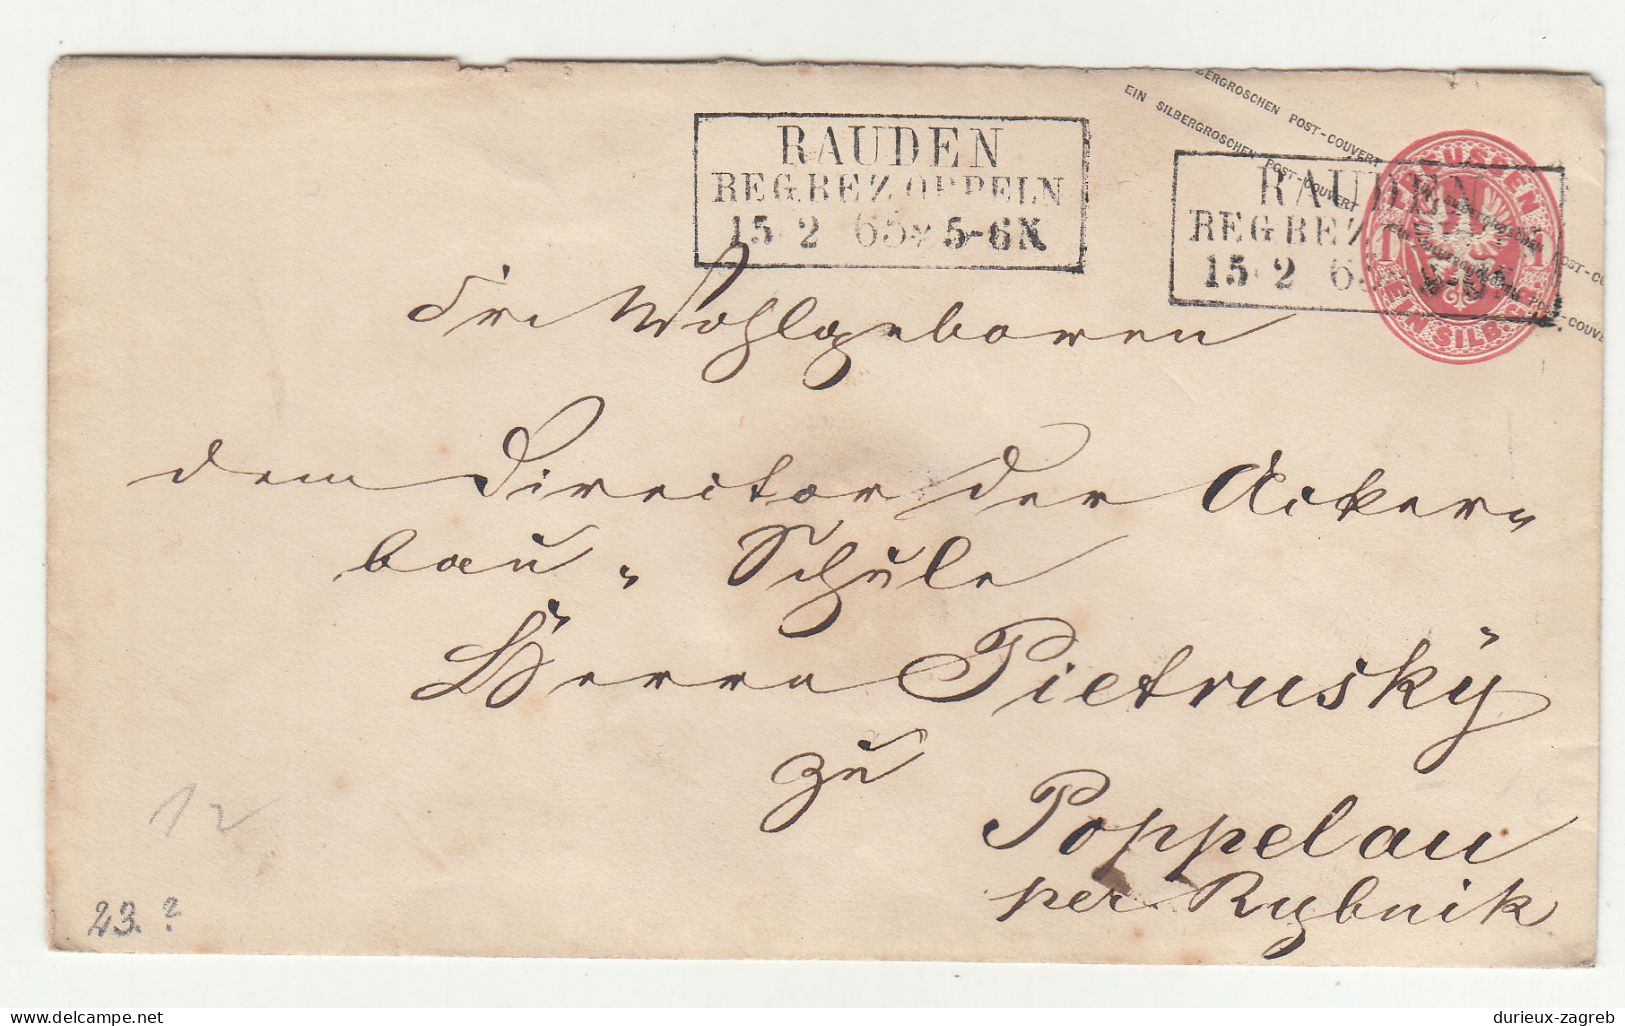 EIN SILBERGROSCHEN POST-COUVERT
RAUDEN
REG.BEZ.OPPELN
15 2 65 5-6N
RAUDEN
REG BEZ
15 2 6
USSEN
1 1
EIN SILB.GR.
Sr. Wohlgeboren
dem Director der Acker-
bau-Schule
Herrn Pietrusky
zu
Poppelau
per Rybnik
12
23.?
delcampe.net
durieux-zagreb